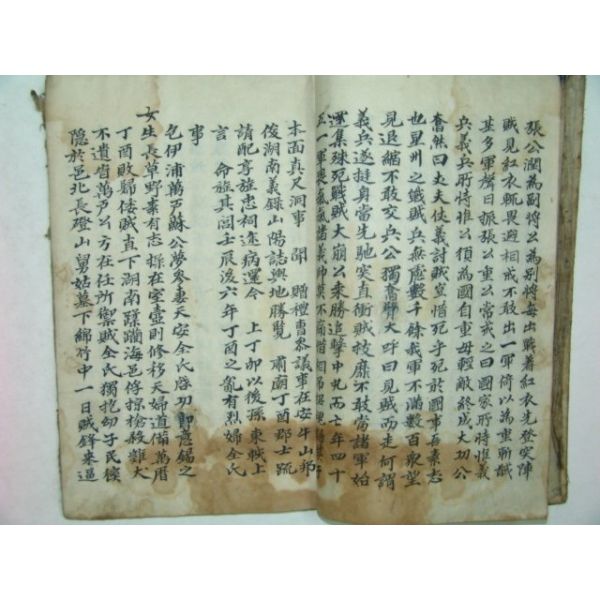 張公潤爲副將公爲別將每出戰著紅衣先登突陣
賊見紅衣輒畏避相戒不敢出一軍倚以爲重斬馘
甚多軍聲日振張公重公常戒之曰國家所恃惟義
兵義兵所恃惟公須爲國自重毋輕敵終成大功公
奮然曰丈夫仗義討賊豈惜死乎死於國事吾素志
也星州之戰賊兵無慮數千餘我軍不滿數百衆望
見退縮不敢交兵公獨奮臂大呼曰見賊而走何謂
義兵遂挺身當先馳突直衝賊披靡不敢當諸軍始
集殊死戰賊大崩公乘勝追擊中丸而亡年四十
五一軍 諸義師莫不痛惜
本面真尺洞事 聞 贈禮曹參議事在安牛山邦
俊湖南義錄山陽誌輿地勝覽 肅廟丁酉郡士疏
請配享旌忠祠遂病運今 上丁卯以後孫東戟上
言 命旌其閭壬辰後六年丁酉之亂有烈婦全氏
事
乞伊浦萬戶蘇公夢參妻天安全氏啓功郞應錫之
女生長草野素有志操在室壺則修移天婦道備萬曆
丁酉敗歸倭賊直下湖南蹂躪海邑俘掠殺雞犬
不遺時萬戶公方在任所禦賊全氏獨抱幼子民徯
隱於邑北長燈山舅姑墓下綿竹中一日賊鋒來逼